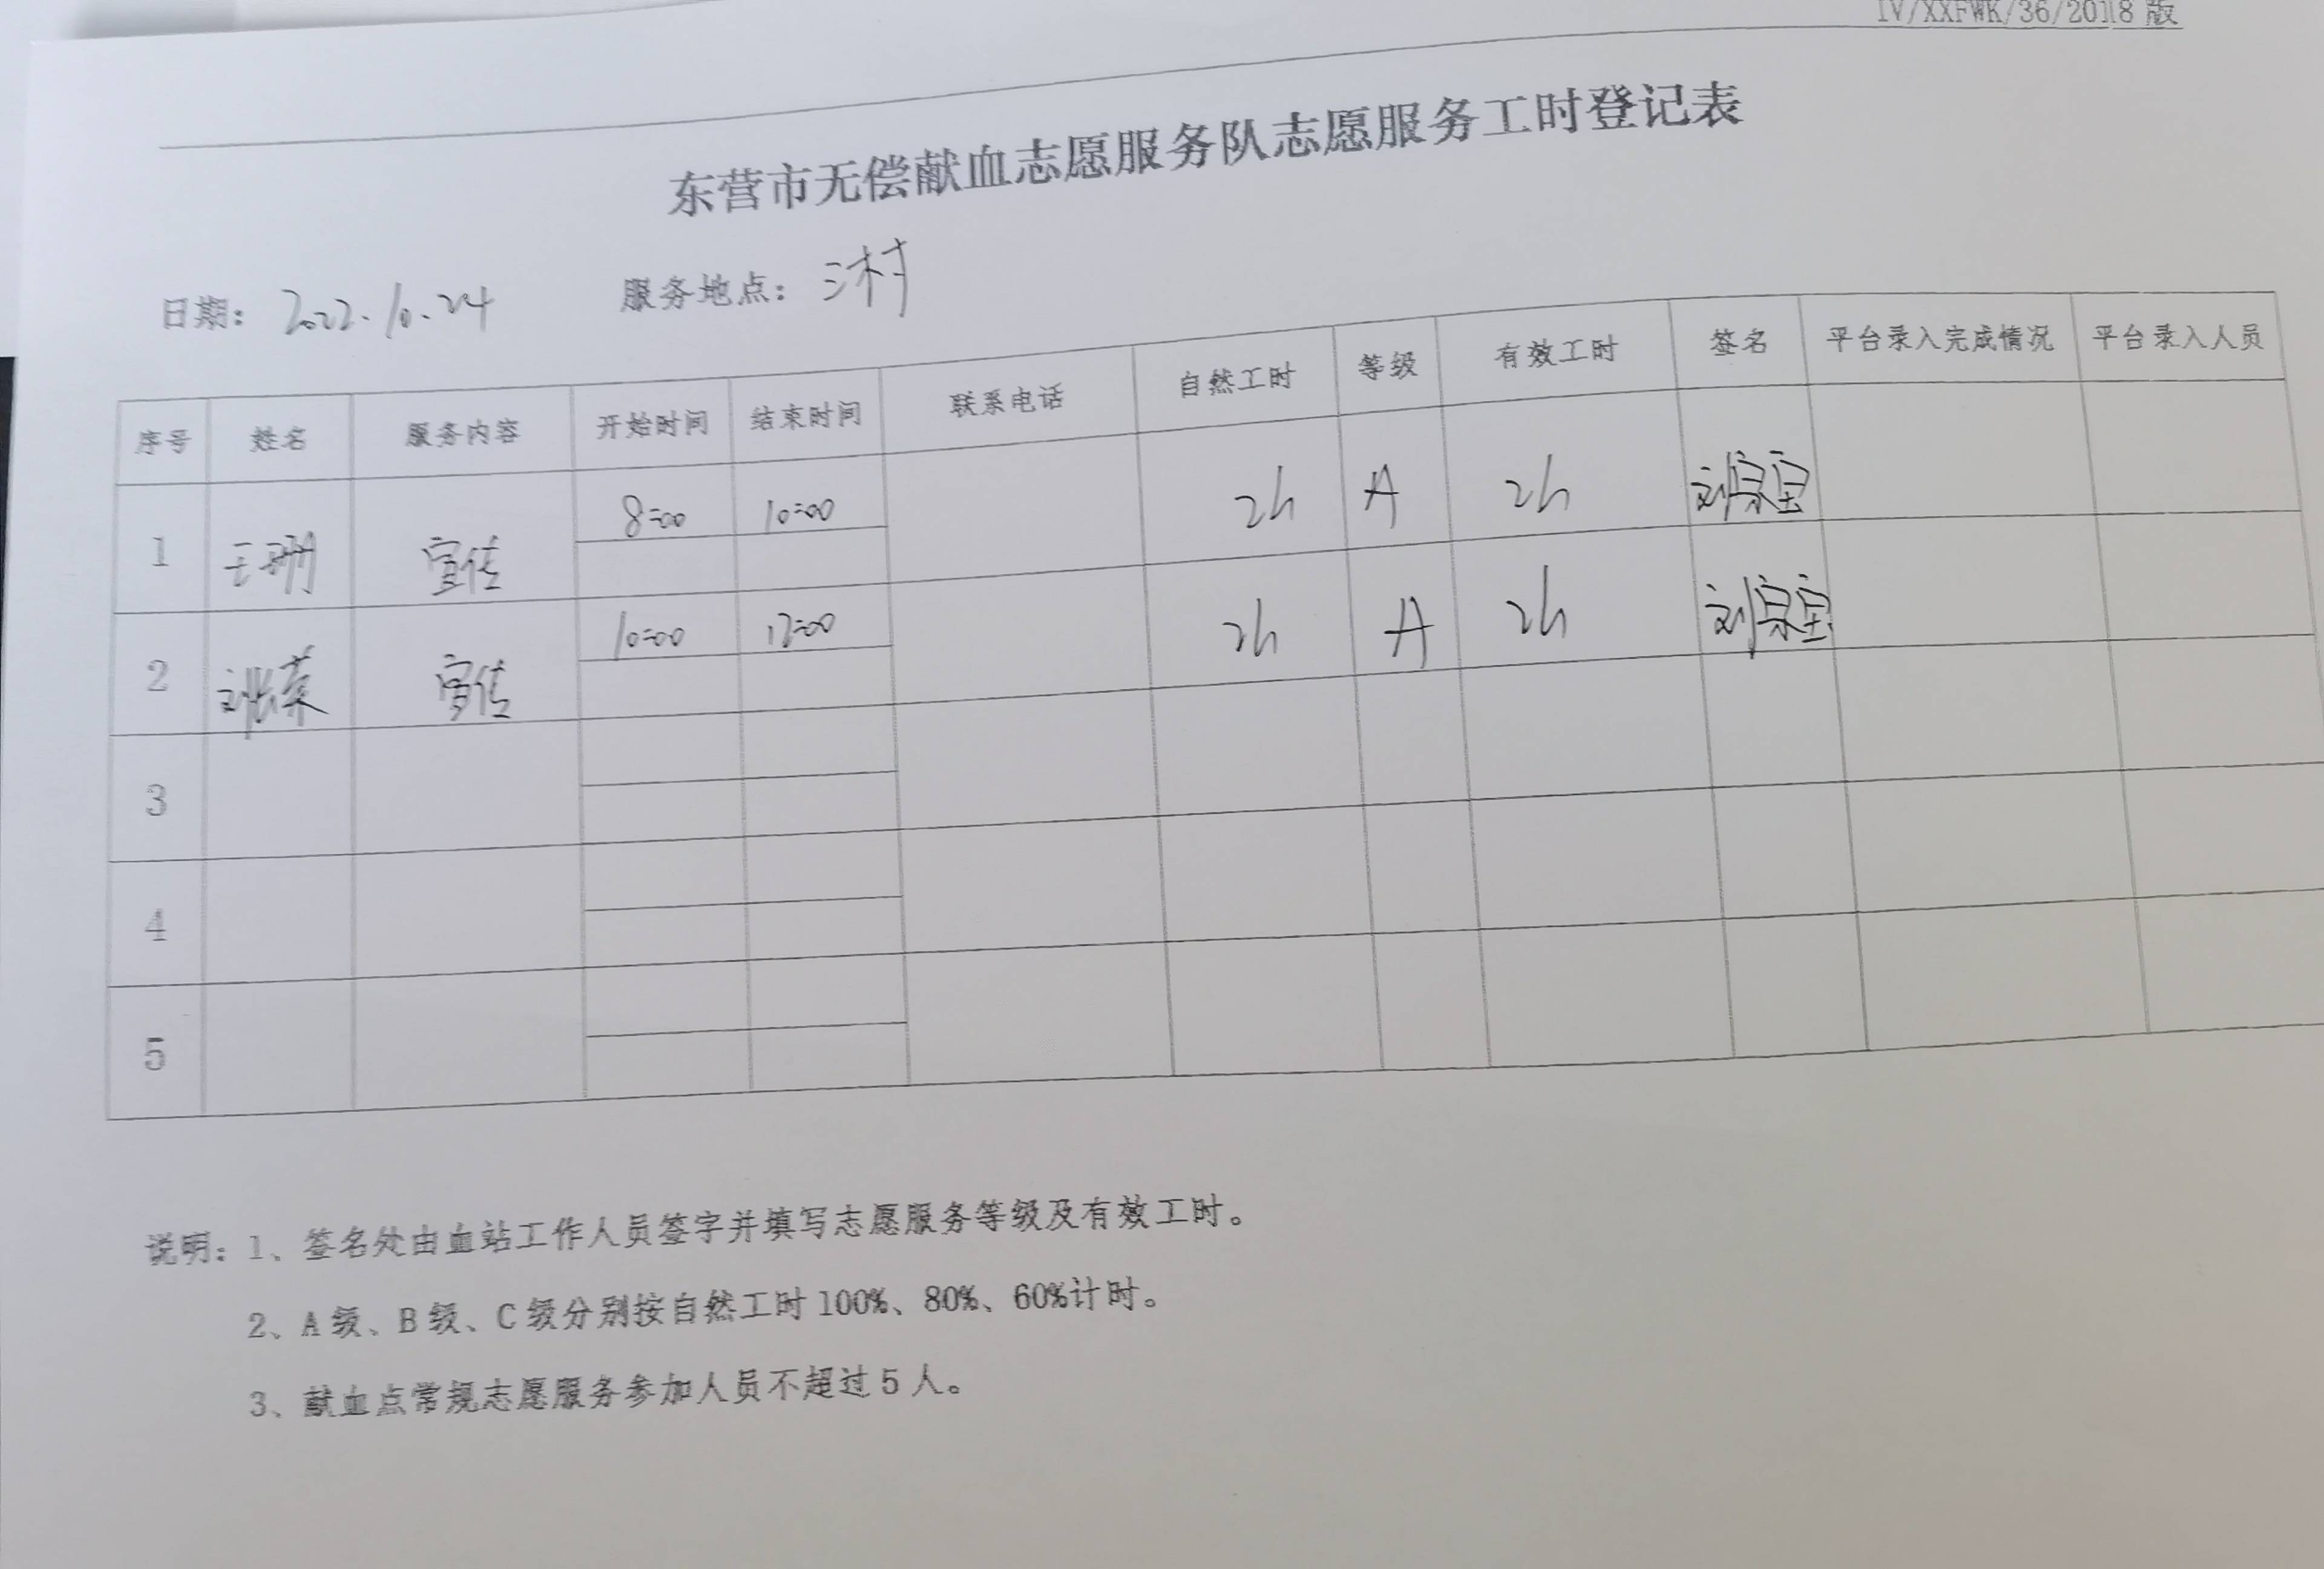 IV/XXFWK/36/2018版
东营市无偿献血志愿服务队志愿服务工时登记表
日期：2022.10.24 服务地点：三村
序号 姓名 服务内容 开始时间 结束时间 联系电话 自然工时 等级 有效工时 签名 平台录入完成情况 平台录入人员
1 王珊 宣传 8:00 10:00 2h A 2h
2 宣传 10:00 12:00 2h A 2h
3
4
5
说明：1、签名处由血站工作人员签字并填写志愿服务等级及有效工时。
2、A级、B级、C级分别按自然工时100%、80%、60%计时。
3、献血点常规志愿服务参加人员不超过5人。